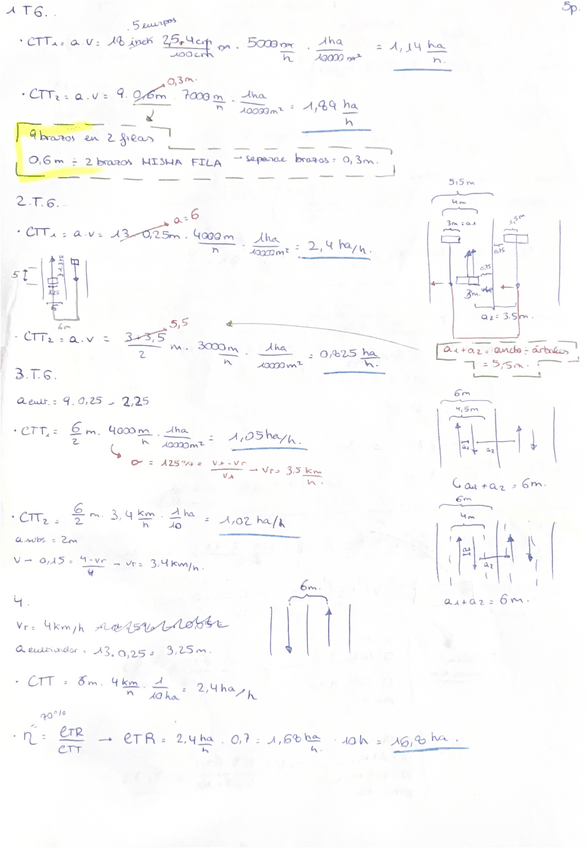 1 T6.
5p.
5 cuerpos
· CTT₁ = a.v = 18 inch 25,4cm/100cm m . 5000m/h . 1ha/10000m² = 1,14 ha/h.
0,3m.
· CTT₂ = a.v = 9. 0,6m . 7000m/h . 1ha/10000m² = 1,89 ha/h
9 brazos en 2 filas
0,6m ÷ 2 brazos MISMA FILA → separac brazos = 0,3m.
2.T.6.
a=6
· CTT₁ = a.v = 13. 0,25m . 4000m/h . 1ha/10000m² = 2,4 ha/h.
5
6m
5,5m
4m
3m=a1
1,5m
0,75
0,75
3m
a2 = 3.5m.
5,5
· CTT₂ = a.v = 3+3,5/2 m. 3000m/h . 1ha/10000m² = 0,825 ha/h.
a1+a2 = ancho ÷ árboles
= 5,5m.
3.T.6.
a cult. = 9.0,25 = 2,25
· CTT₁ = 6/2 m. 4000m/h . 1ha/10000m² = 1,05ha/h.
6m
4,5m
a1
a2
a1+a2 = 6m.
· CTT₂ = 6/2 m . 3,4 km/h . 1ha/10 = 1,02 ha/h
a subs = 2m
v → 0,15 = 4-vr/4 → vr = 3,4km/h.
6m
4m
a2
a1+a2 = 6m.
4.
6m.
vr = 4km/h
a cultivador = 13.0,25 = 3,25m.
· CTT = 6m. 4km/h . 1/10 ha = 2,4ha/h
70%
· η = CTR/CTT → CTR = 2,4 ha/h . 0,7 = 1,68 ha/h . 10h = 16,8 ha.